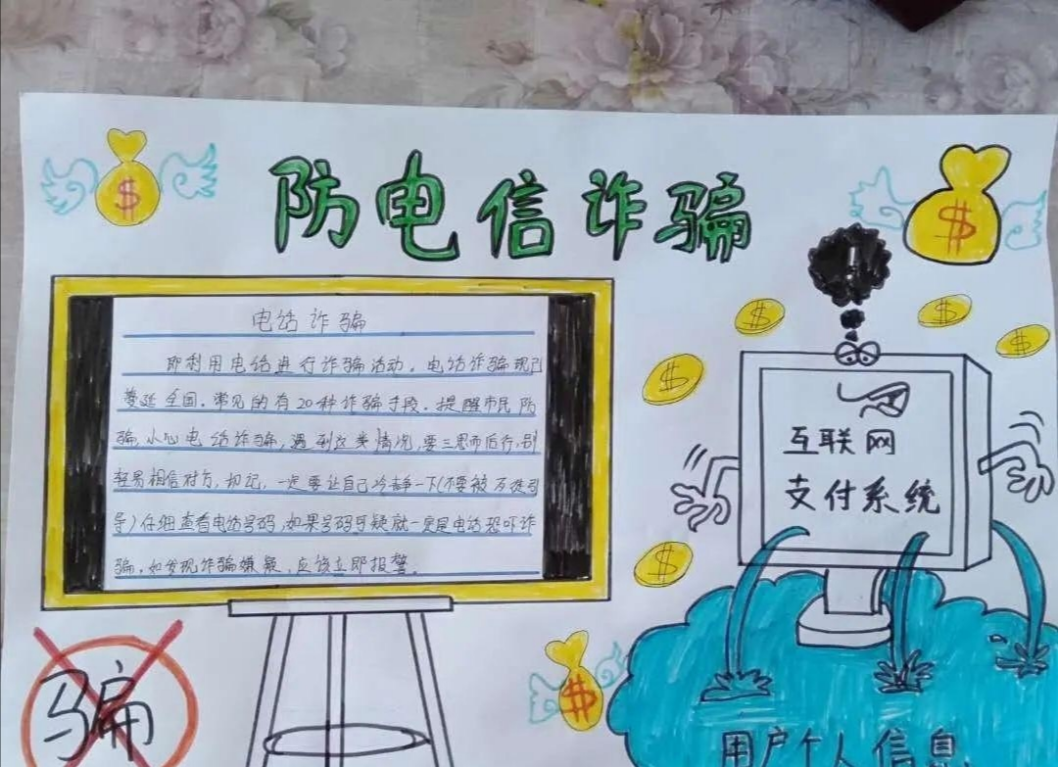 防电信诈骗
电话诈骗
即利用电话进行诈骗活动。电话诈骗现已
蔓延全国。常见的有20种诈骗手段。提醒市民防
骗,小心电话诈骗,遇到这类情况,要三思而后行,别
轻易相信对方,切记,一定要让自己冷静一下(不要被歹徒引
导)仔细查看电话号码,如果号码可疑就一定是电话恐吓诈
骗。如发现诈骗嫌疑,应该立即报警。
互联网
支付系统
骗
用户个人信息